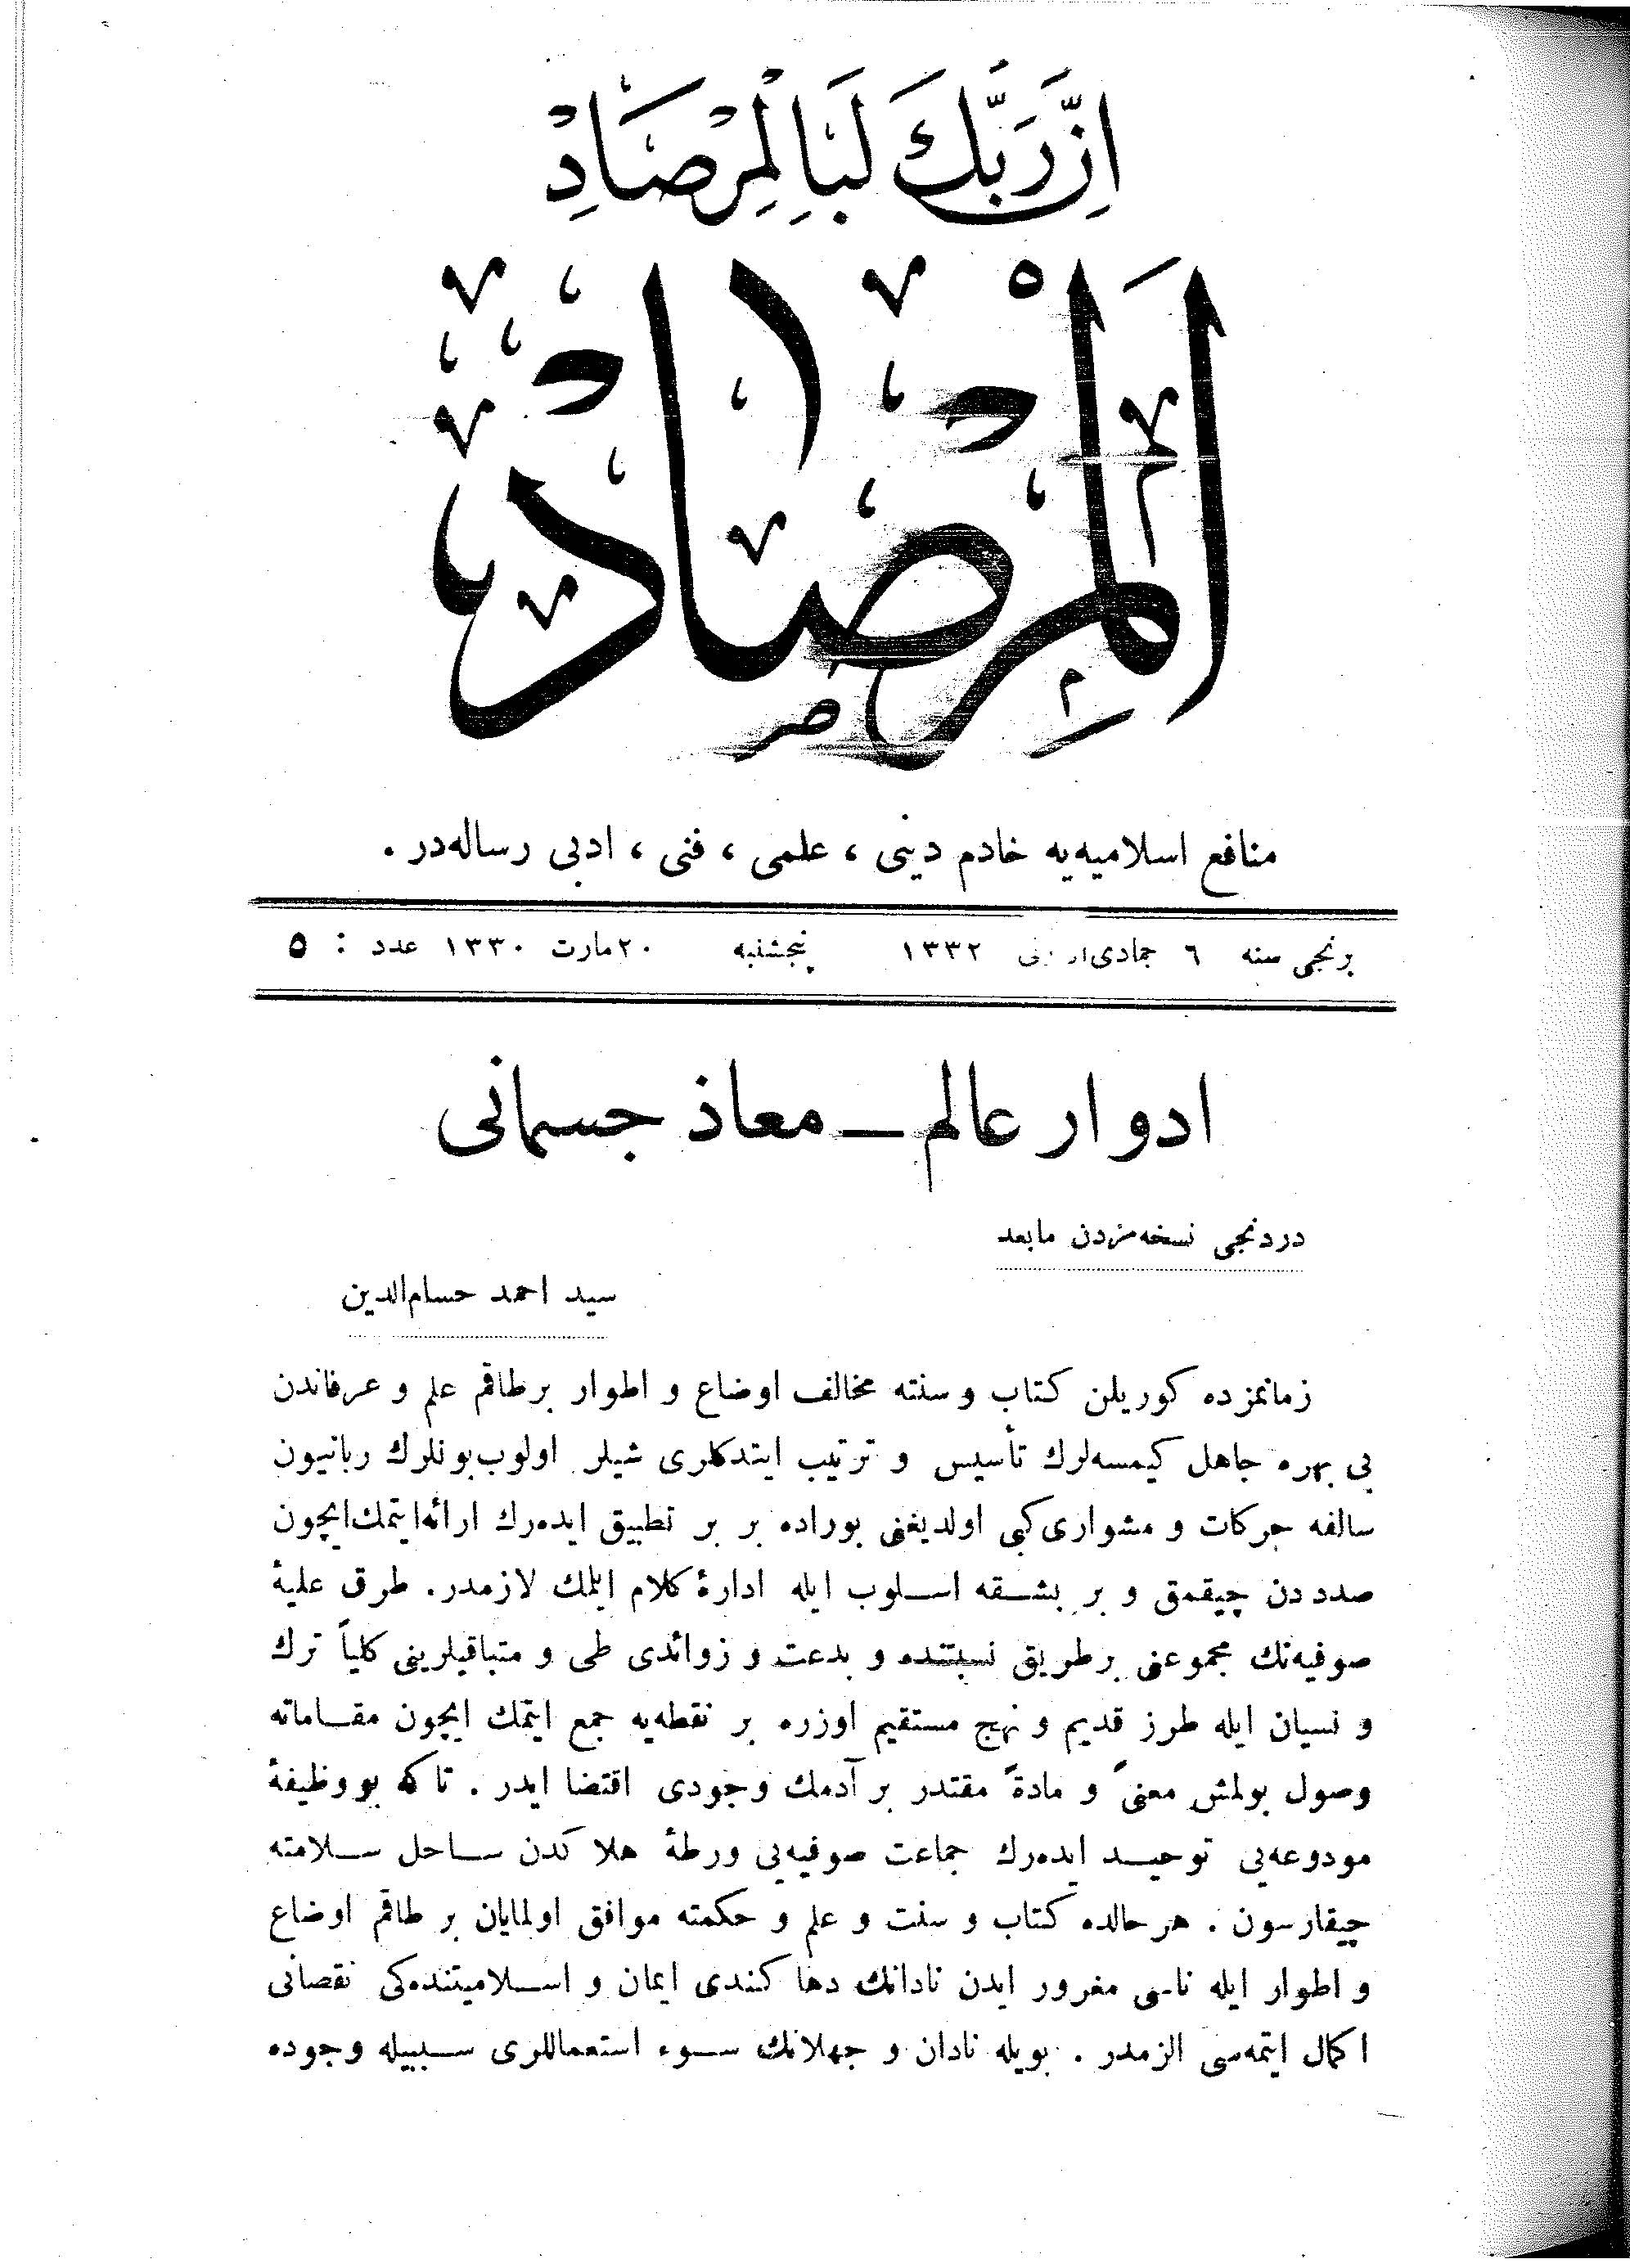 اِنَّ رَبَّكَ لَبِالْمِرْصَادِ
اَلْمِرْصَاد
منافع اسلاميه‌يه خادم دينی ، علمی ، فنی ، ادبی رساله‌در .
برنجی سنه ٦ جمادی ١٣٣٢ پنجشنبه ٢٠ مارت ١٣٣٠ عدد : ٥
ادوار عالم — معاذ جسمانی
دردنجی نسخه‌مزدن مابعد
سيد احمد حسام‌الدين
زمانمزده كوريلن كتاب و سنته مخالف اوضاع و اطوار برطاقم علم و عرفاندن
بی بهره جاهل كيمسه‌لرك تأسيس و ترتيب ايتدكلری شيلر اولوب بونلرك ربانيون
سالفه حركات و مشواری كبی اولديغنی بوراده بر بر تطبيق ايده‌رك ارائه ايتمك ايچون
صدددن چيقمق و بر بشـقه اسـلوب ايله ادارۀ كلام ايلمك لازمدر. طرق عليۀ
صوفيه‌نك مجموعنی برطريق نسبتنده و بدعت و زوائدی طی و متباقيلرينی كلياً ترك
و نسيان ايله طرز قديم و نهج مستقيم اوزره بر نقطه‌يه جمع ايتمك ايچون مقـاماته
وصول بولمش معنیً و مادةً مقتدر بر آدمك وجودی اقتضا ايدر . تاكه بو وظيفۀ
مودوعه‌يی توحيـد ايده‌رك جماعت صوفيه‌يی ورطۀ هلاكدن سـاحل سـلامته
چيقارسون . هر حالده كتاب و سنت و علم و حكمته موافق اولمايان بر طاقم اوضاع
و اطوار ايله ناسی مغرور ايدن نادانك دها كندی ايمان و اسـلاميتنده‌كی نقصانی
اكمال ايتمه‌سی الزمدر . بويله نادان و جهلانك سـوء استعماللری سـببيله وجوده